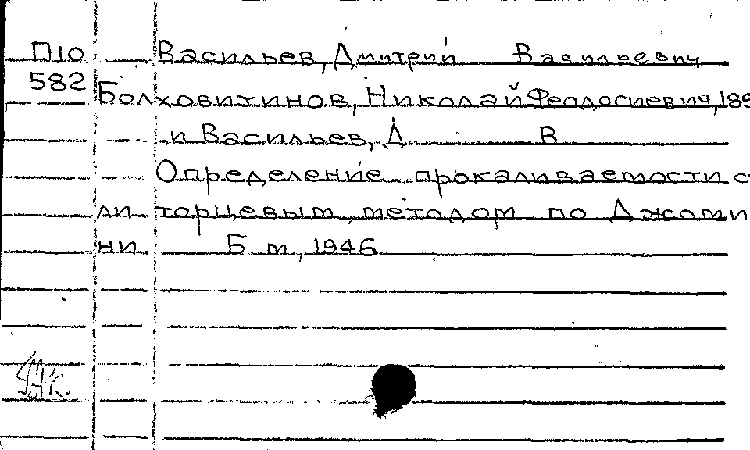 П10 Васильев, Дмитрий Васильевич
582 Болховитинов, Николай Феодосиевич, 189
и Васильев, Д В
Определение прокаливаемости с
ли торцевым методом по Джоми
ни Б м, 1946